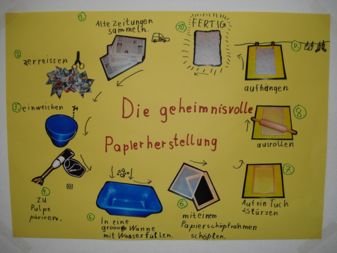 Die geheimnisvolle
Papierherstellung
1.
Alte Zeitungen
sammeln.
2.
zerreissen
3.
einweichen
4.
zu
Pulpe
pürieren.
5.
In eine
grosse Wanne
mit Wasser füllen.
6.
mit einem
Papierschöpfrahmen
schöpfen.
7.
Auf ein Tuch
stürzen
8.
ausrollen
9.
aufhängen
10.
FERTIG